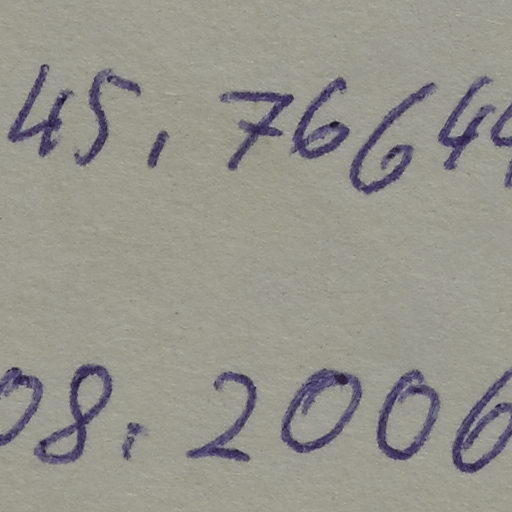 45, 76644
08. 2006